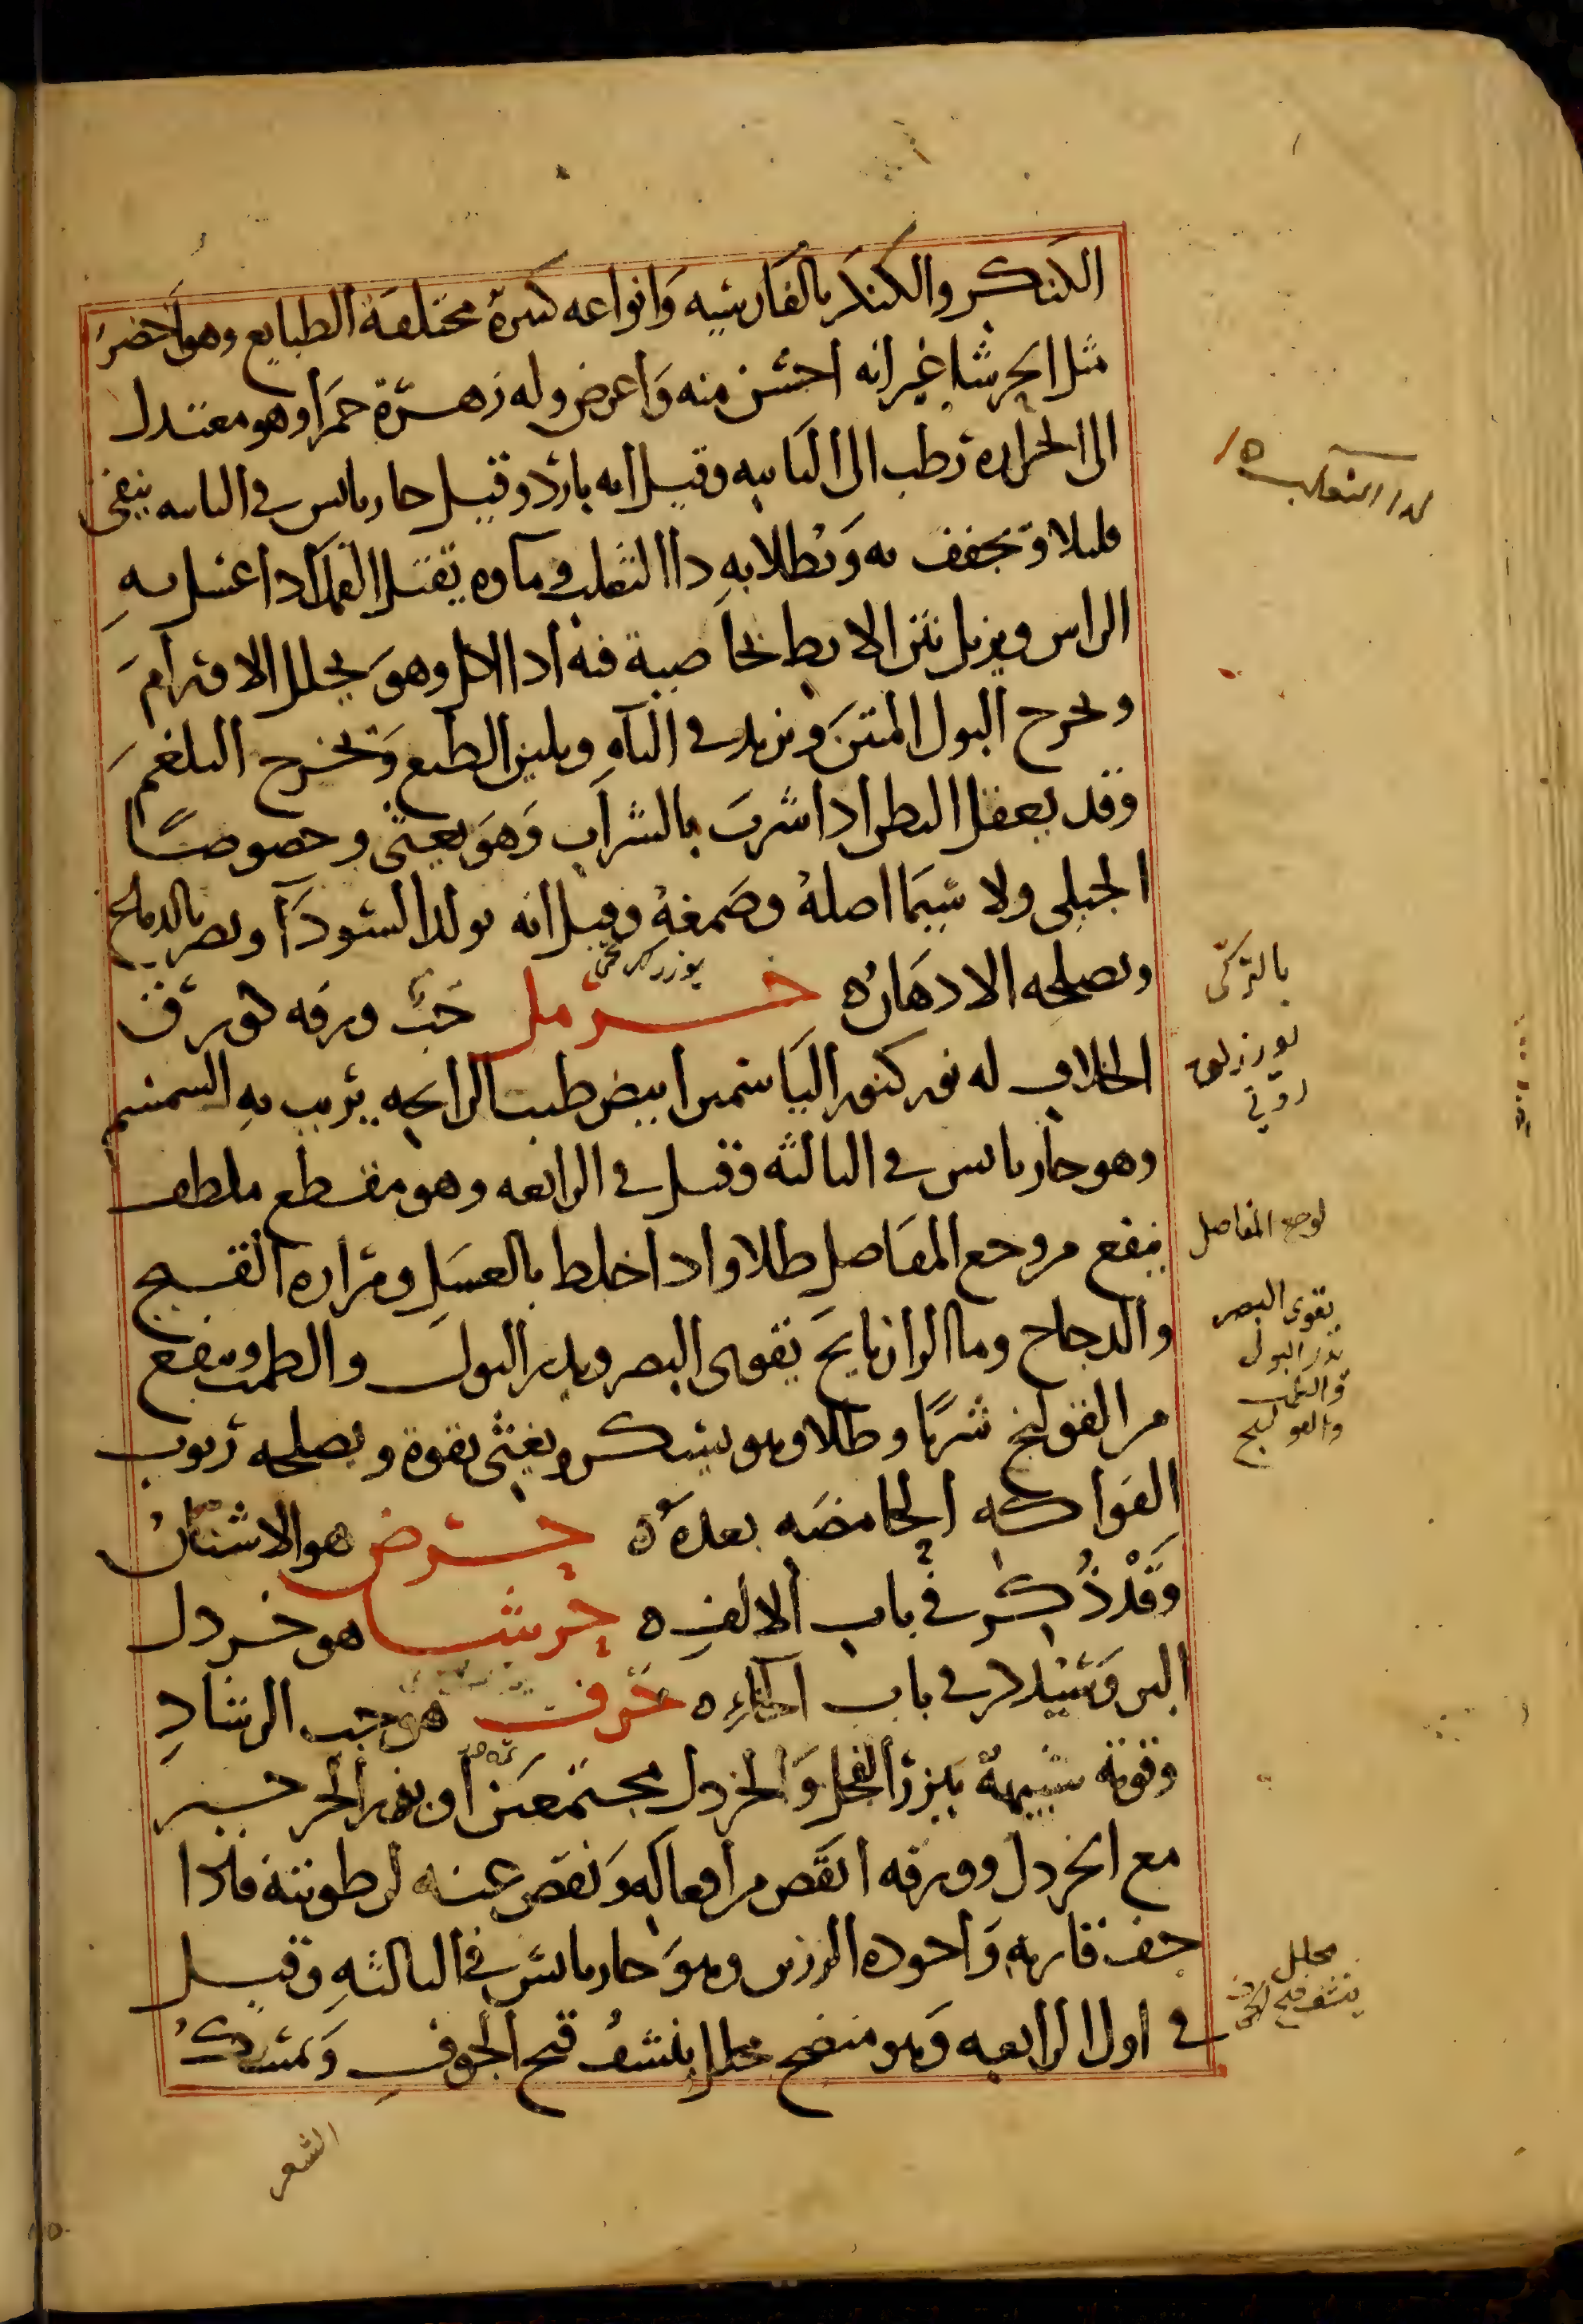 الكنكر والكنكر بالفارسيه وانواعه كثيرة مختلفة الطبايع وهو اخضر
مثل الحرشا غير انه اخشن منه واعرض وله زهرة حمرا وهو معتدل
الى الحراره رطب الى الثانيه وقيل انه بارد وقيل حار يابس في الثانيه ينقى
قليلا وتجفف به ويطلا به داا الثعلب وماوه يقتل القمل اذا غسل به
الراس ويزيل نتن الابط بخاصية فيه اذا اكل وهو يحلل الاورام
ويخرج البول المنتن ويزيد في الباه ويلين الطبع ويخرج البلغم
وقد يعقل البطن اذا شرب بالشراب وهو يغثي وخصوصا
الجبلى ولا سيما اصله وصمغه وقيل انه يولد السودا ويضر بالدماغ
ويصلحه الادهان ه حرمل حب ورقه كورق
الخلاف له نور كنور الياسمين ابيض طيب الرايحه يربب به السمسم
وهو حار يابس في الثالثه وقيل في الرابعه وهو مقطع ملطف
ينفع من وجع المفاصل طلا واذا خلط بالعسل ومراره القبج
والدجاج وما الرازيانج يقوى البصر ويدر البول والطمث وينفع
من القولنج شربا وطلا وهو يسكر ويغثى بقوة ويصلحه ربوب
الفواكه الحامضه بعده ه حرض هو الاشنان
وقد ذكر في باب الالف ه حرشا هو خردل
البر وسيذكر في باب الخاء ه حرف هو حب الرشاد
وقوته شبيهة ببزر الفجل والخردل مجتمعين او بزر الجرجير
مع الخردل وورقه انقص من افعاله ونقص عنه لرطوبته فاذا
جف قاربه واجوده الرزين وهو حار يابس في الثالثه وقيل
في اول الرابعه وهو منضج محلل ينشف قيح الجوف ويمسك
الشعر
لداا الثعلب
بالتركى
لوجع المفاصل
يقوى البصر
يدر البول
والطمث
والقولنج
محلل
ينشف قيح الجوف